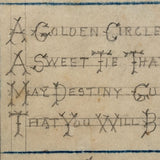 A GOLDEN CIRCLE
A SWEET TIE THA
MAY DESTINY GU
THAT YOU WILL B